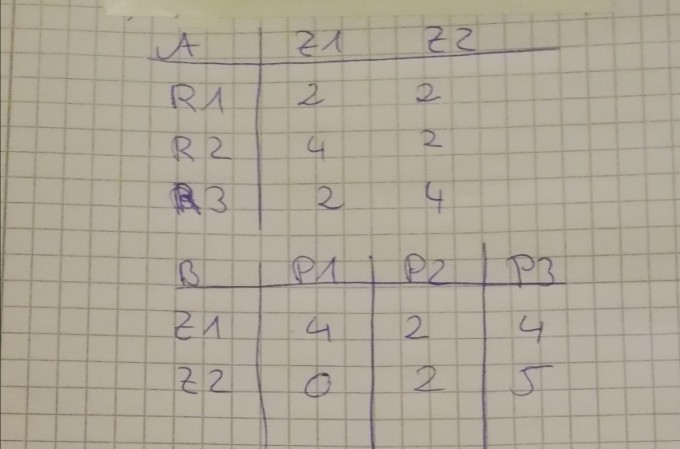 A Z1 Z2
R1 2 2
R2 4 2
R3 2 4
B P1 P2 P3
Z1 4 2 4
Z2 0 2 5